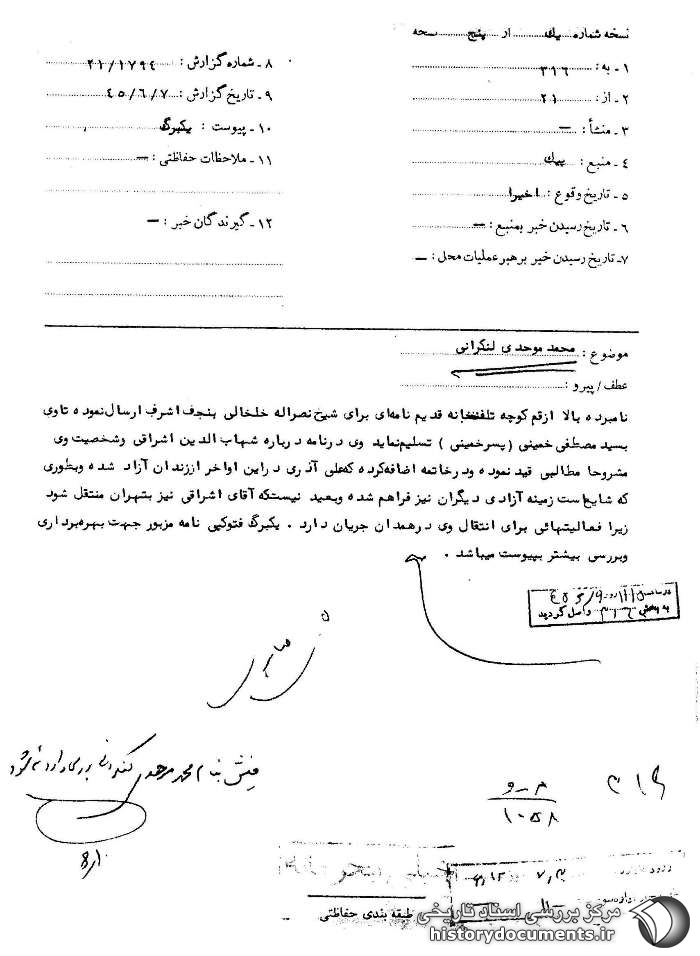 نسخه شماره یك از پنج نسخه
۱ـ به: ۳۱۶
۲ـ از: ۲۱
۳ـ منشأ: ـ
۴ـ منبع: پیك
۵ـ تاریخ وقوع: اخیرا
۶ـ تاریخ رسیدن خبر بمنبع: ـ
۷ـ تاریخ رسیدن خبر برهبر عملیات محل: ـ
۸ـ شماره گزارش: ۲۱/۱۷۹۴
۹ـ تاریخ گزارش: ۴۵/۶/۷
۱۰ـ پیوست: یکبرگ
۱۱ـ ملاحظات حفاظتی: ـ
۱۲ـ گیرندگان خبر: ـ
موضوع: محمد موحدی لنکرانی
عطف/پیرو:
نامبرده بالا ازقم کوچه تلفنخانه قدیم نامه‌ای برای شیخ نصراله خلخالی بنجف اشرف ارسال نموده تاوی
بسید مصطفی خمینی (پسرخمینی) تسلیم نماید وی درنامه درباره شهاب الدین اشراقی وشخصیت وی
مشروحا مطالبی قید نموده ودرخاتمه اضافه کرده که علی آذری دراین اواخر اززندان آزاد شده وبطوری
که شایع است زمینه آزادی دیگران نیز فراهم شده وبعید نیستکه آقای اشراقی نیز بتهران منتقل شود
زیرا فعالیتهائی برای انتقال وی درهمدان جریان دارد. یکبرگ فتوکپی نامه مزبور جهت بهره‌برداری
وبررسی بیشتر بپیوست میباشد.
واصل گردید
فیش بنام محمد موحدی لنکرانی بررسی و ارائه شود
۳۱۶
م ـ و
۱۰۵۸
۵/۱۰
طبقه بندی حفاظتی
مرکز بررسی اسناد تاریخی
historydocuments.ir